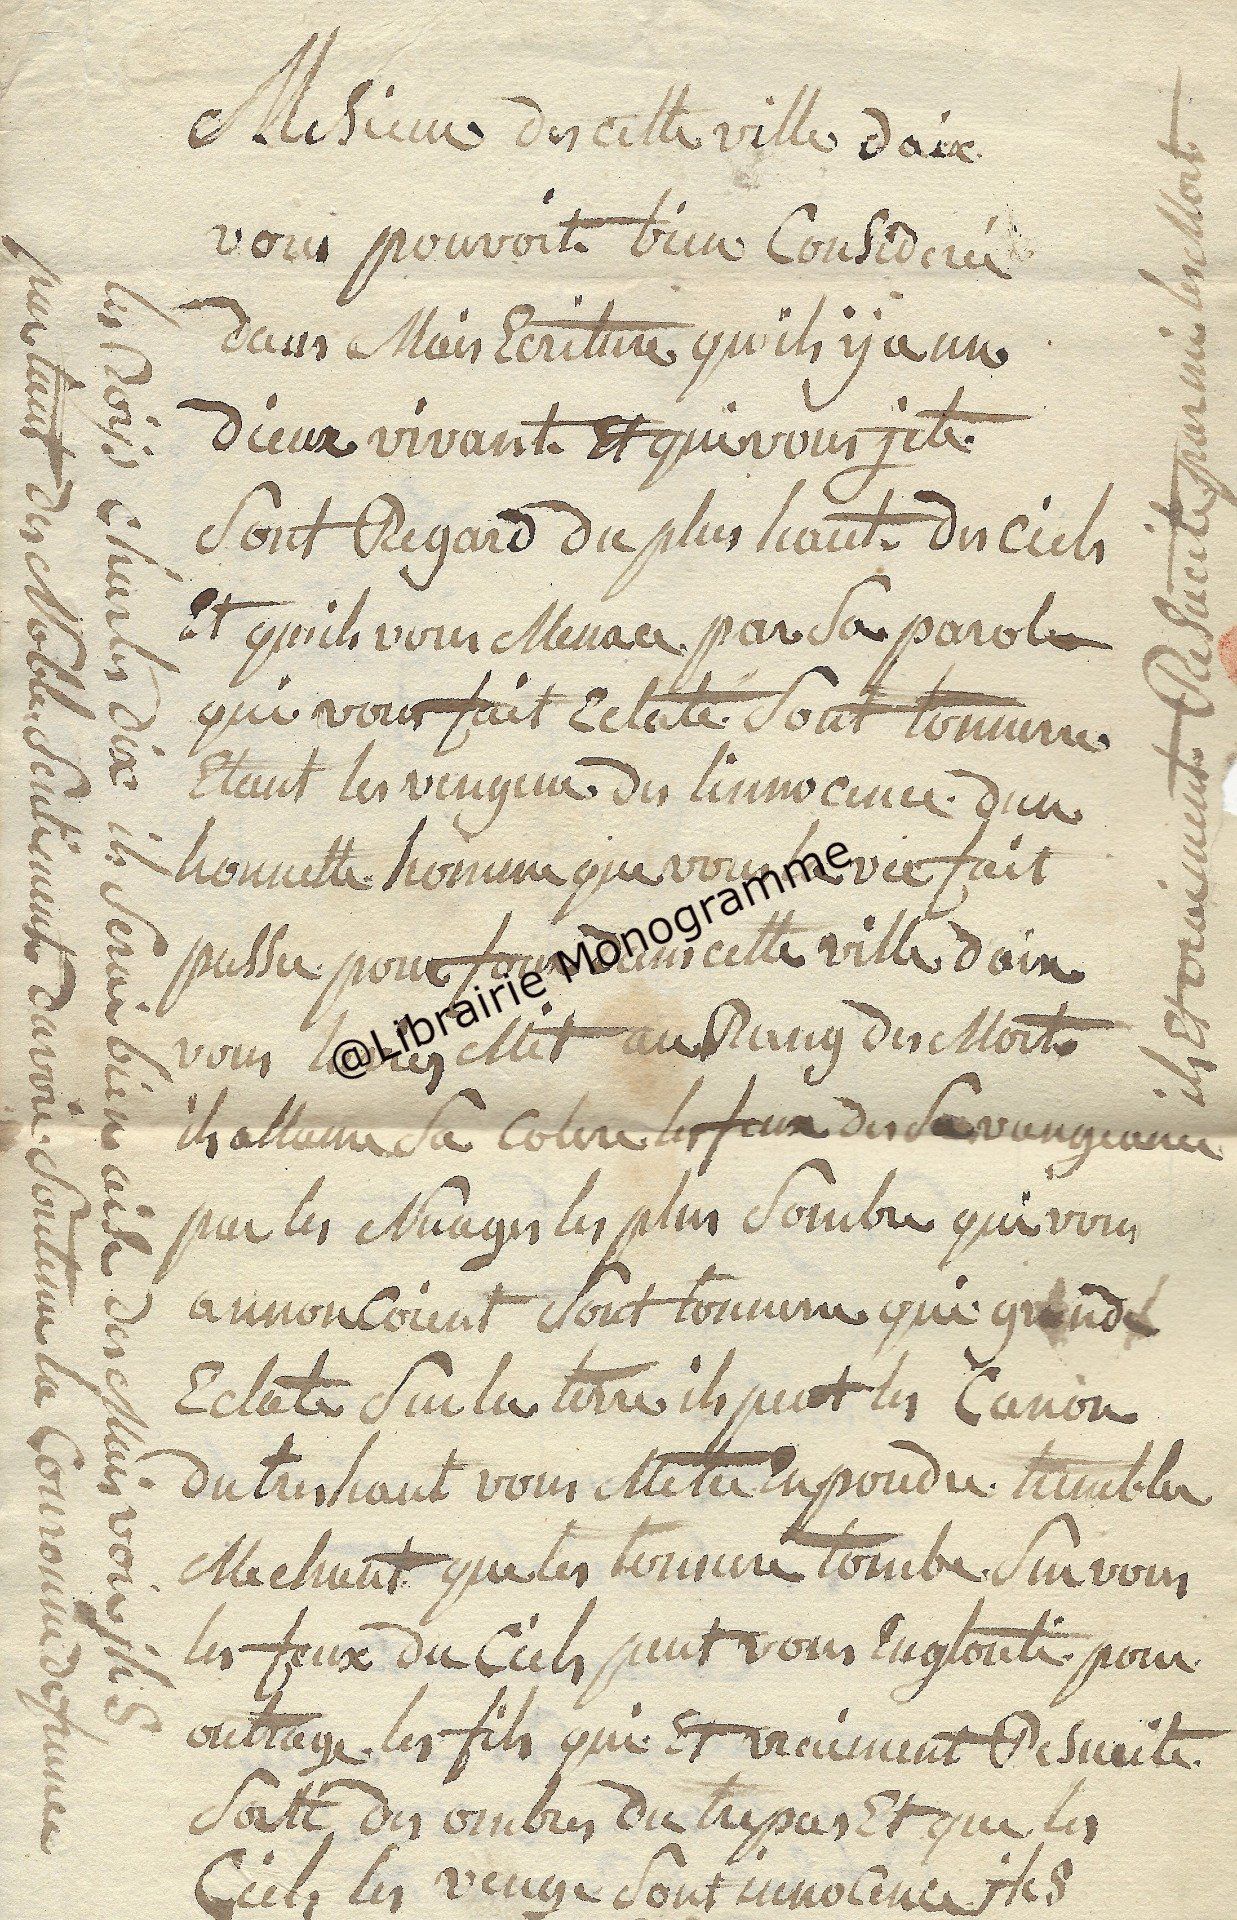 Mesieur des cette ville daix
vous pouvoite bien Considerée
dans Mais Ecriture quils ÿ a un
dieux vivant Et qui vous jete
Sont Regard du plus haute des Ciels
Et quils vous Menace par Sa parole
qui vous fait Eclaté Sont tonnerre
Etant les vengeur des linnocence dun
honnette homme que vous lavée fait
passe pour fous dans cette ville daix
vous lavies Mit au Rang des Morts
ils allume Sa Colere les feux des Sa vangeance
par les Nuages les plus Sombre qui vous
annoncoient Sont tonnerre qui gronde
Eclate Sur la terre ils peut les Canon
du tres haut vous Mete En poudre trembler
Mechant que les tonnere tombe Sur vous
les feux du Ciels peut vous Engloutie pour
outrage les fils qui Et vraiment Resucite
Sortt des ombres du trepas Et que les
Ciels les venge Sont innocence jhs
ils Et vraiment Resucite parmie les Mort
les Roÿs charles dix ils Serai bien aise des Mais voir jhs
par tant des Noble Sentiment davoir Soutenu la Couronne de france
@Librairie Monogramme